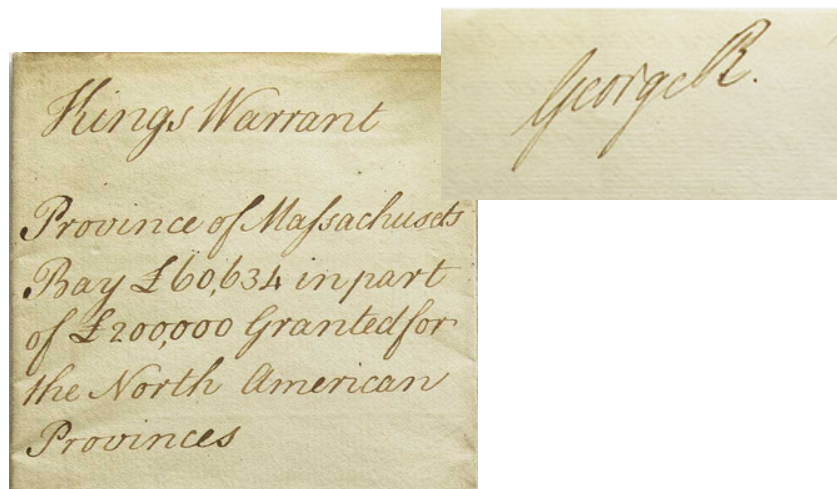 George R.
Kings Warrant
Province of Maſsachusets
Bay £60,634 in part
of £200,000 Granted for
the North American
Provinces